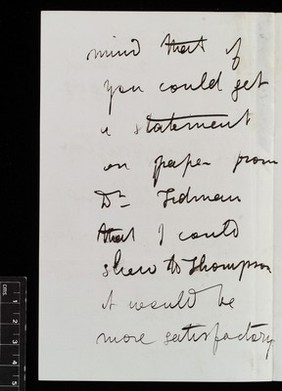 mind that if
you could get
a statement
on paper from
Dr Tidman
that I could
shew to Thompson
it would be
more satisfactory